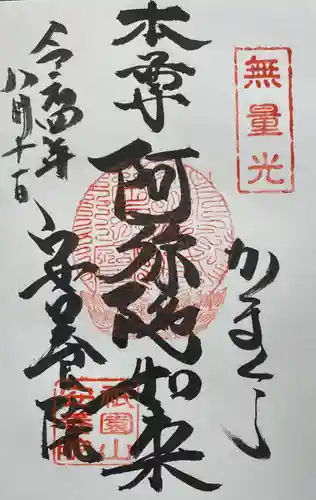 無量光
かまくら
本尊
阿弥陀如来
令和四年
八月十一日
安養院
祇園山
安養院